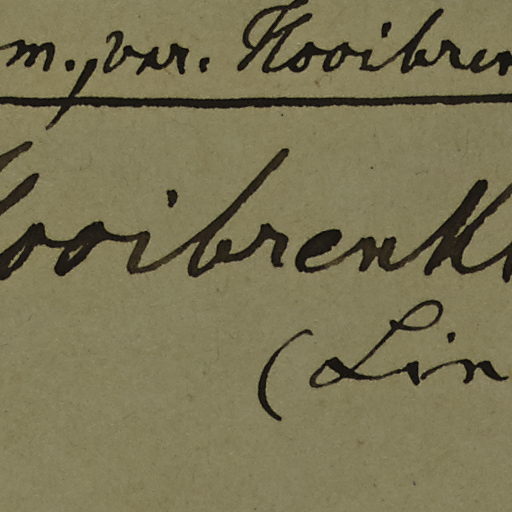 m., var. Hooibren
ooibrenkl
(Lin